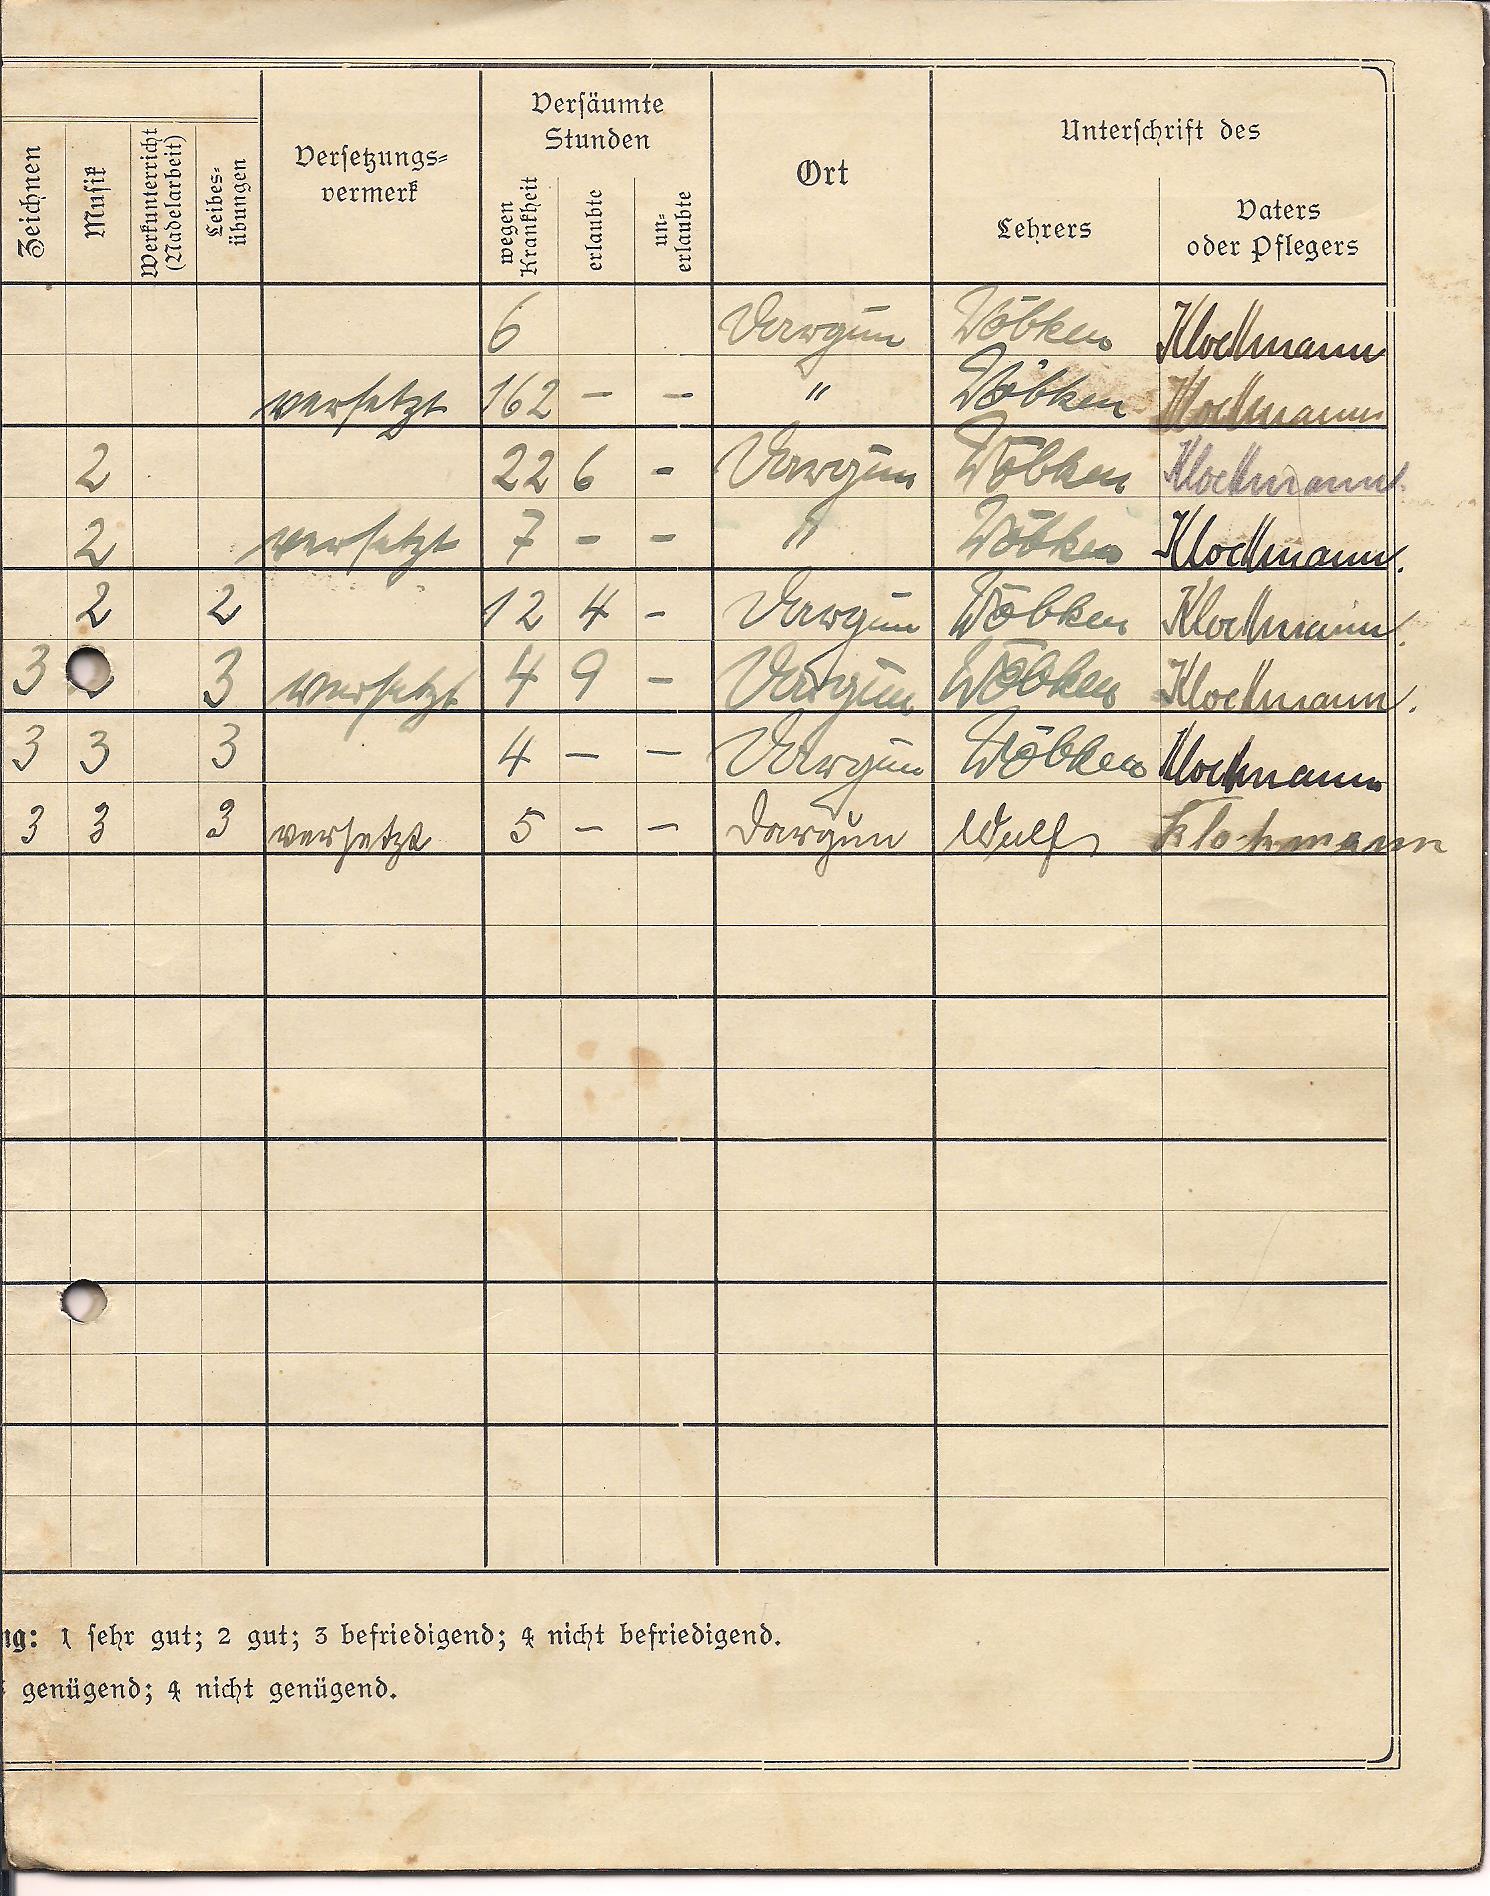 Zeichnen
Musik
Werkunterricht
(Nadelarbeit)
Leibes-
übungen
Versetzungs-
vermerk
Versäumte
Stunden
wegen
Krankheit
erlaubte
un-
erlaubte
Ort
Unterschrift des
Lehrers
Vaters
oder Pflegers
6 Dargun Wöbken Klockmann
versetzt 162 - - " Wöbken Klockmann
2 22 6 - Dargun Wöbken Klockmann.
2 versetzt 7 - - " Wöbken Klockmann.
2 2 12 4 - Dargun Wöbken Klockmann.
3 3 versetzt 4 9 - Dargun Wöbken Klockmann.
3 3 3 4 - - Dargun Wöbken Klockmann
3 3 3 versetzt 5 - - Dargun Wulf Klockmann
ng: 1 sehr gut; 2 gut; 3 befriedigend; 4 nicht befriedigend.
genügend; 4 nicht genügend.